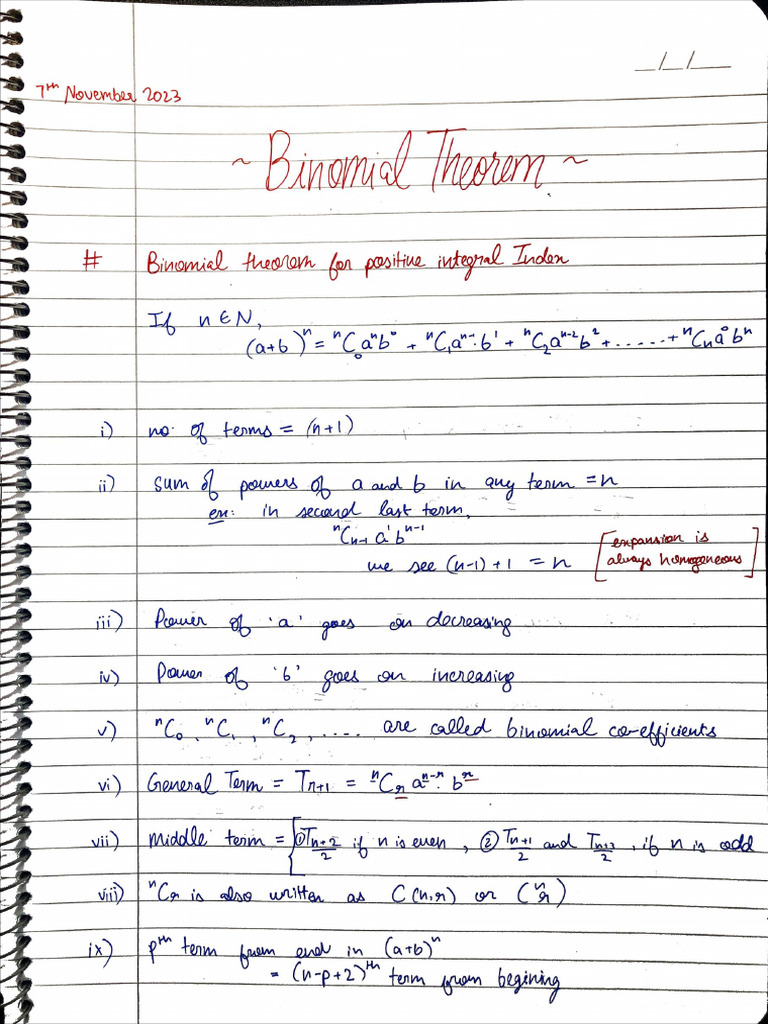 _/_/__
7th November 2023
~ Binomial Theorem ~
# Binomial theorem for positive integral Index
If n ∈ N,
(a+b)ⁿ = ⁿC₀aⁿb⁰ + ⁿC₁aⁿ⁻¹·b¹ + ⁿC₂aⁿ⁻²b² + ...... + ⁿCₙa⁰bⁿ
i) no. of terms = (n+1)
ii) sum of powers of a and b in any term = n
ex: in second last term,
ⁿCₙ₋₁a¹bⁿ⁻¹
we see (n-1) + 1 = n
[expansion is
always homogeneous]
iii) Power of 'a' goes on decreasing
iv) Power of 'b' goes on increasing
v) ⁿC₀, ⁿC₁, ⁿC₂, .... are called binomial co-efficients
vi) General Term = Tᵣ₊₁ = ⁿCᵣ aⁿ⁻ʳ· bʳ
vii) middle term = { ① T_(n+2)/2 if n is even, ② T_(n+1)/2 and T_(n+3)/2, if n is odd
viii) ⁿCᵣ is also written as C(n,r) or (ⁿᵣ)
ix) pth term from end in (a+b)ⁿ
= (n-p+2)th term from begining